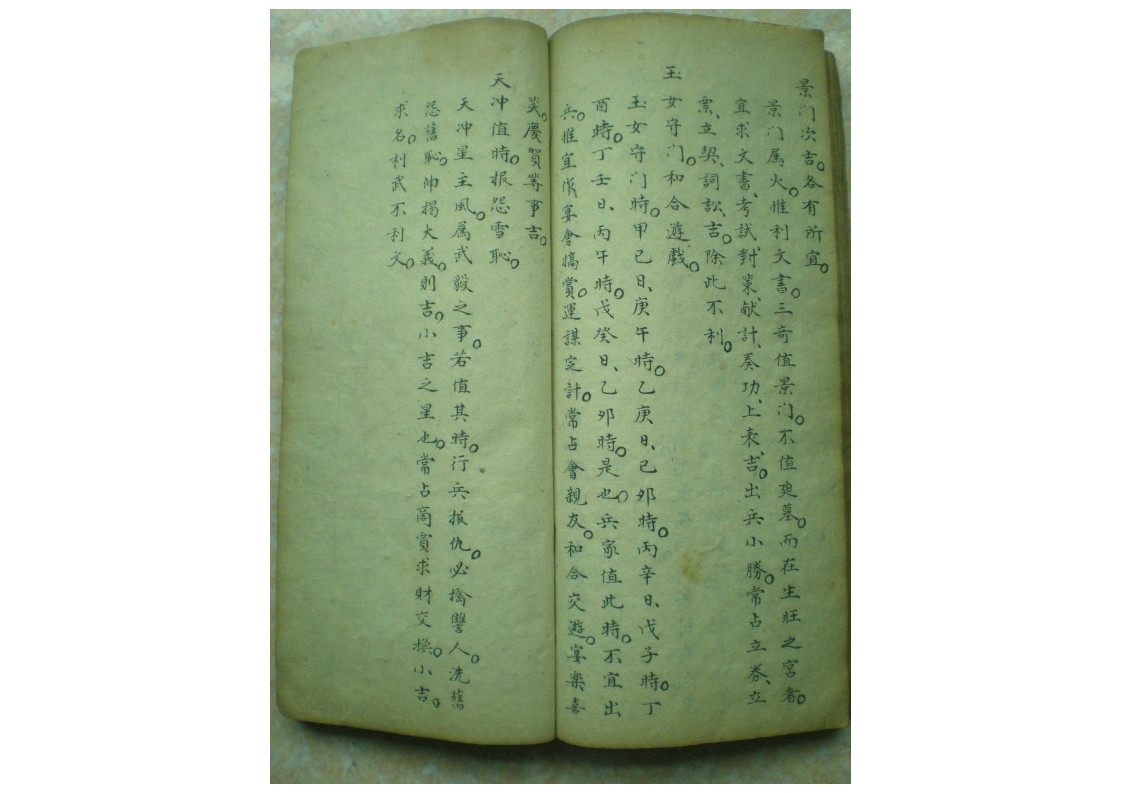 景门次吉。各有所宜。
景门属火。惟利文書。三奇值景门。不值廹墓。而在生旺之宮者。
宜求文書、考試、對策、献計、奏功、上表、吉。出兵小勝。常占立券、立
業、立契、詞訟、吉。除此不利。
玉女守门。和合遊戲。
玉女守门時。甲己日、庚午時。乙庚日、己卯時。丙辛日、戊子時。丁
酉時。丁壬日、丙午時。戊癸日、乙卯時。是也。兵家值此時。不宜出
兵。惟宜作宴會犒賞。運謀定計。常占會親友。和合交遊。宴樂喜
筵。慶賀等事吉。
天冲值時。报怨雪恥。
天冲星主風。属武毅之事。若值其時。行兵报仇。必擒讐人。洗舊
怨舊恥。伸揚大義。則吉。小吉之星也。常占商賈求財交換。小吉。
求名。利武不利文。